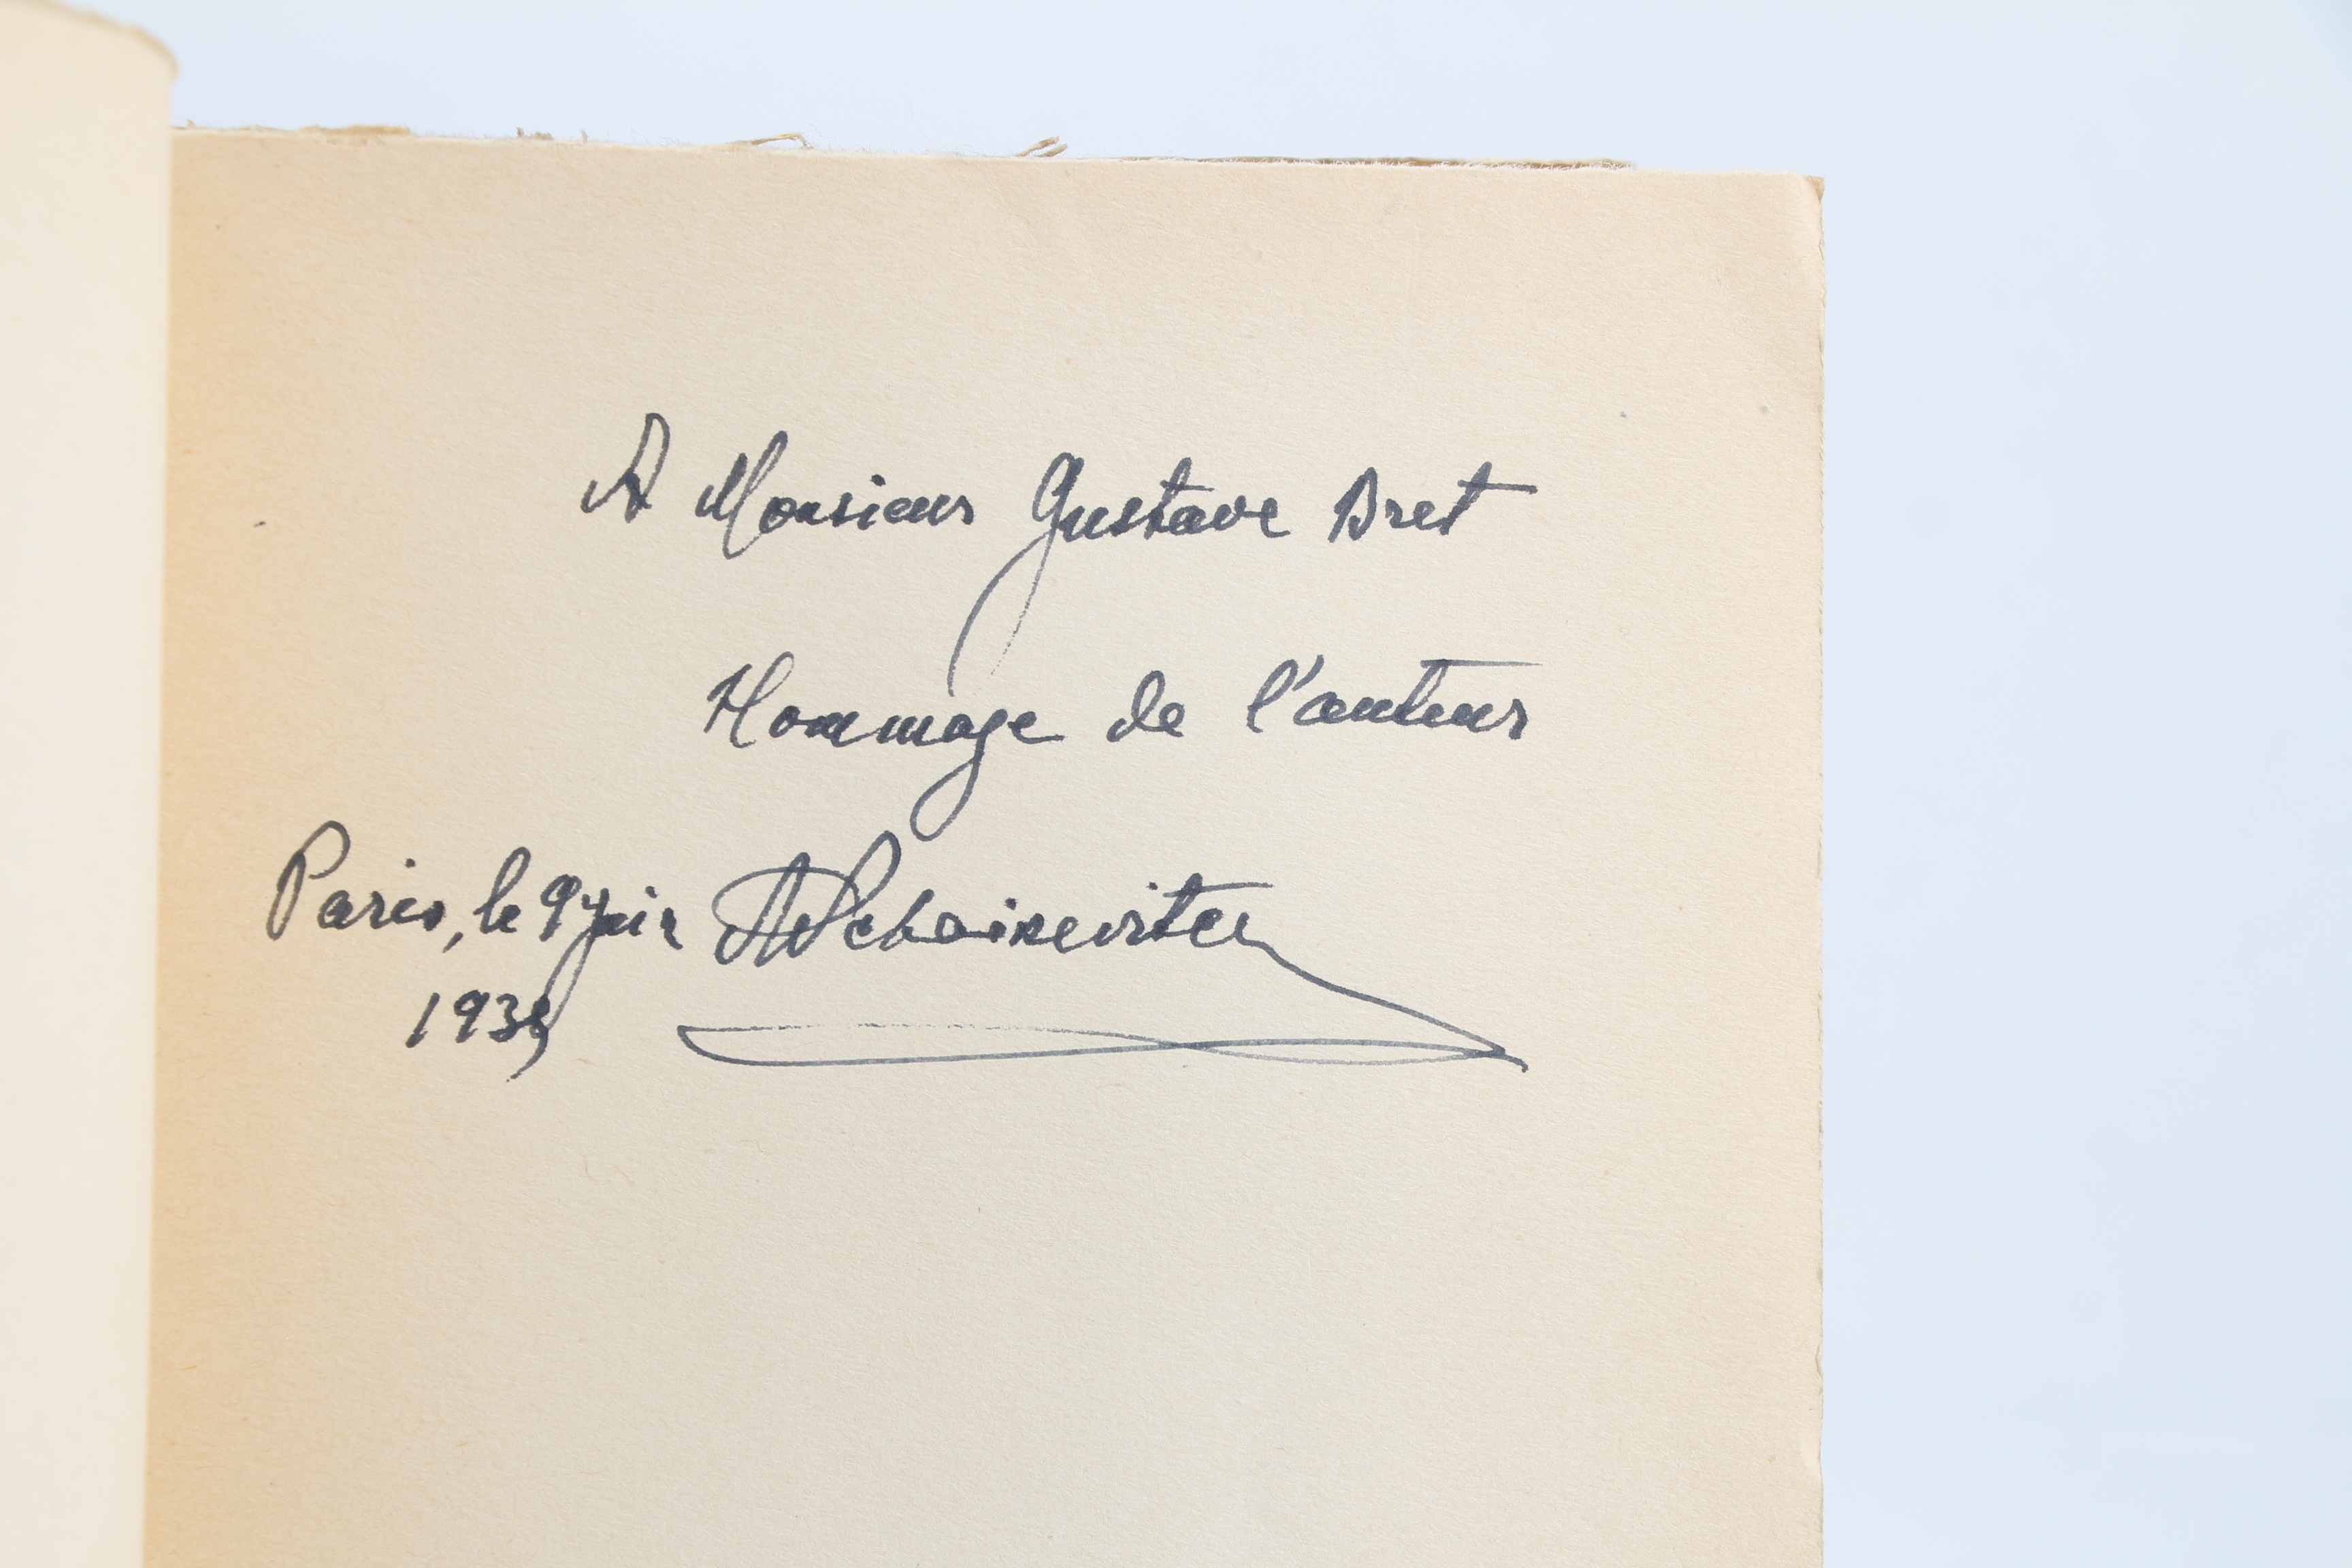 A Monsieur Gustave Bret
Hommage de l'auteur
Paris, le 9 juin
193